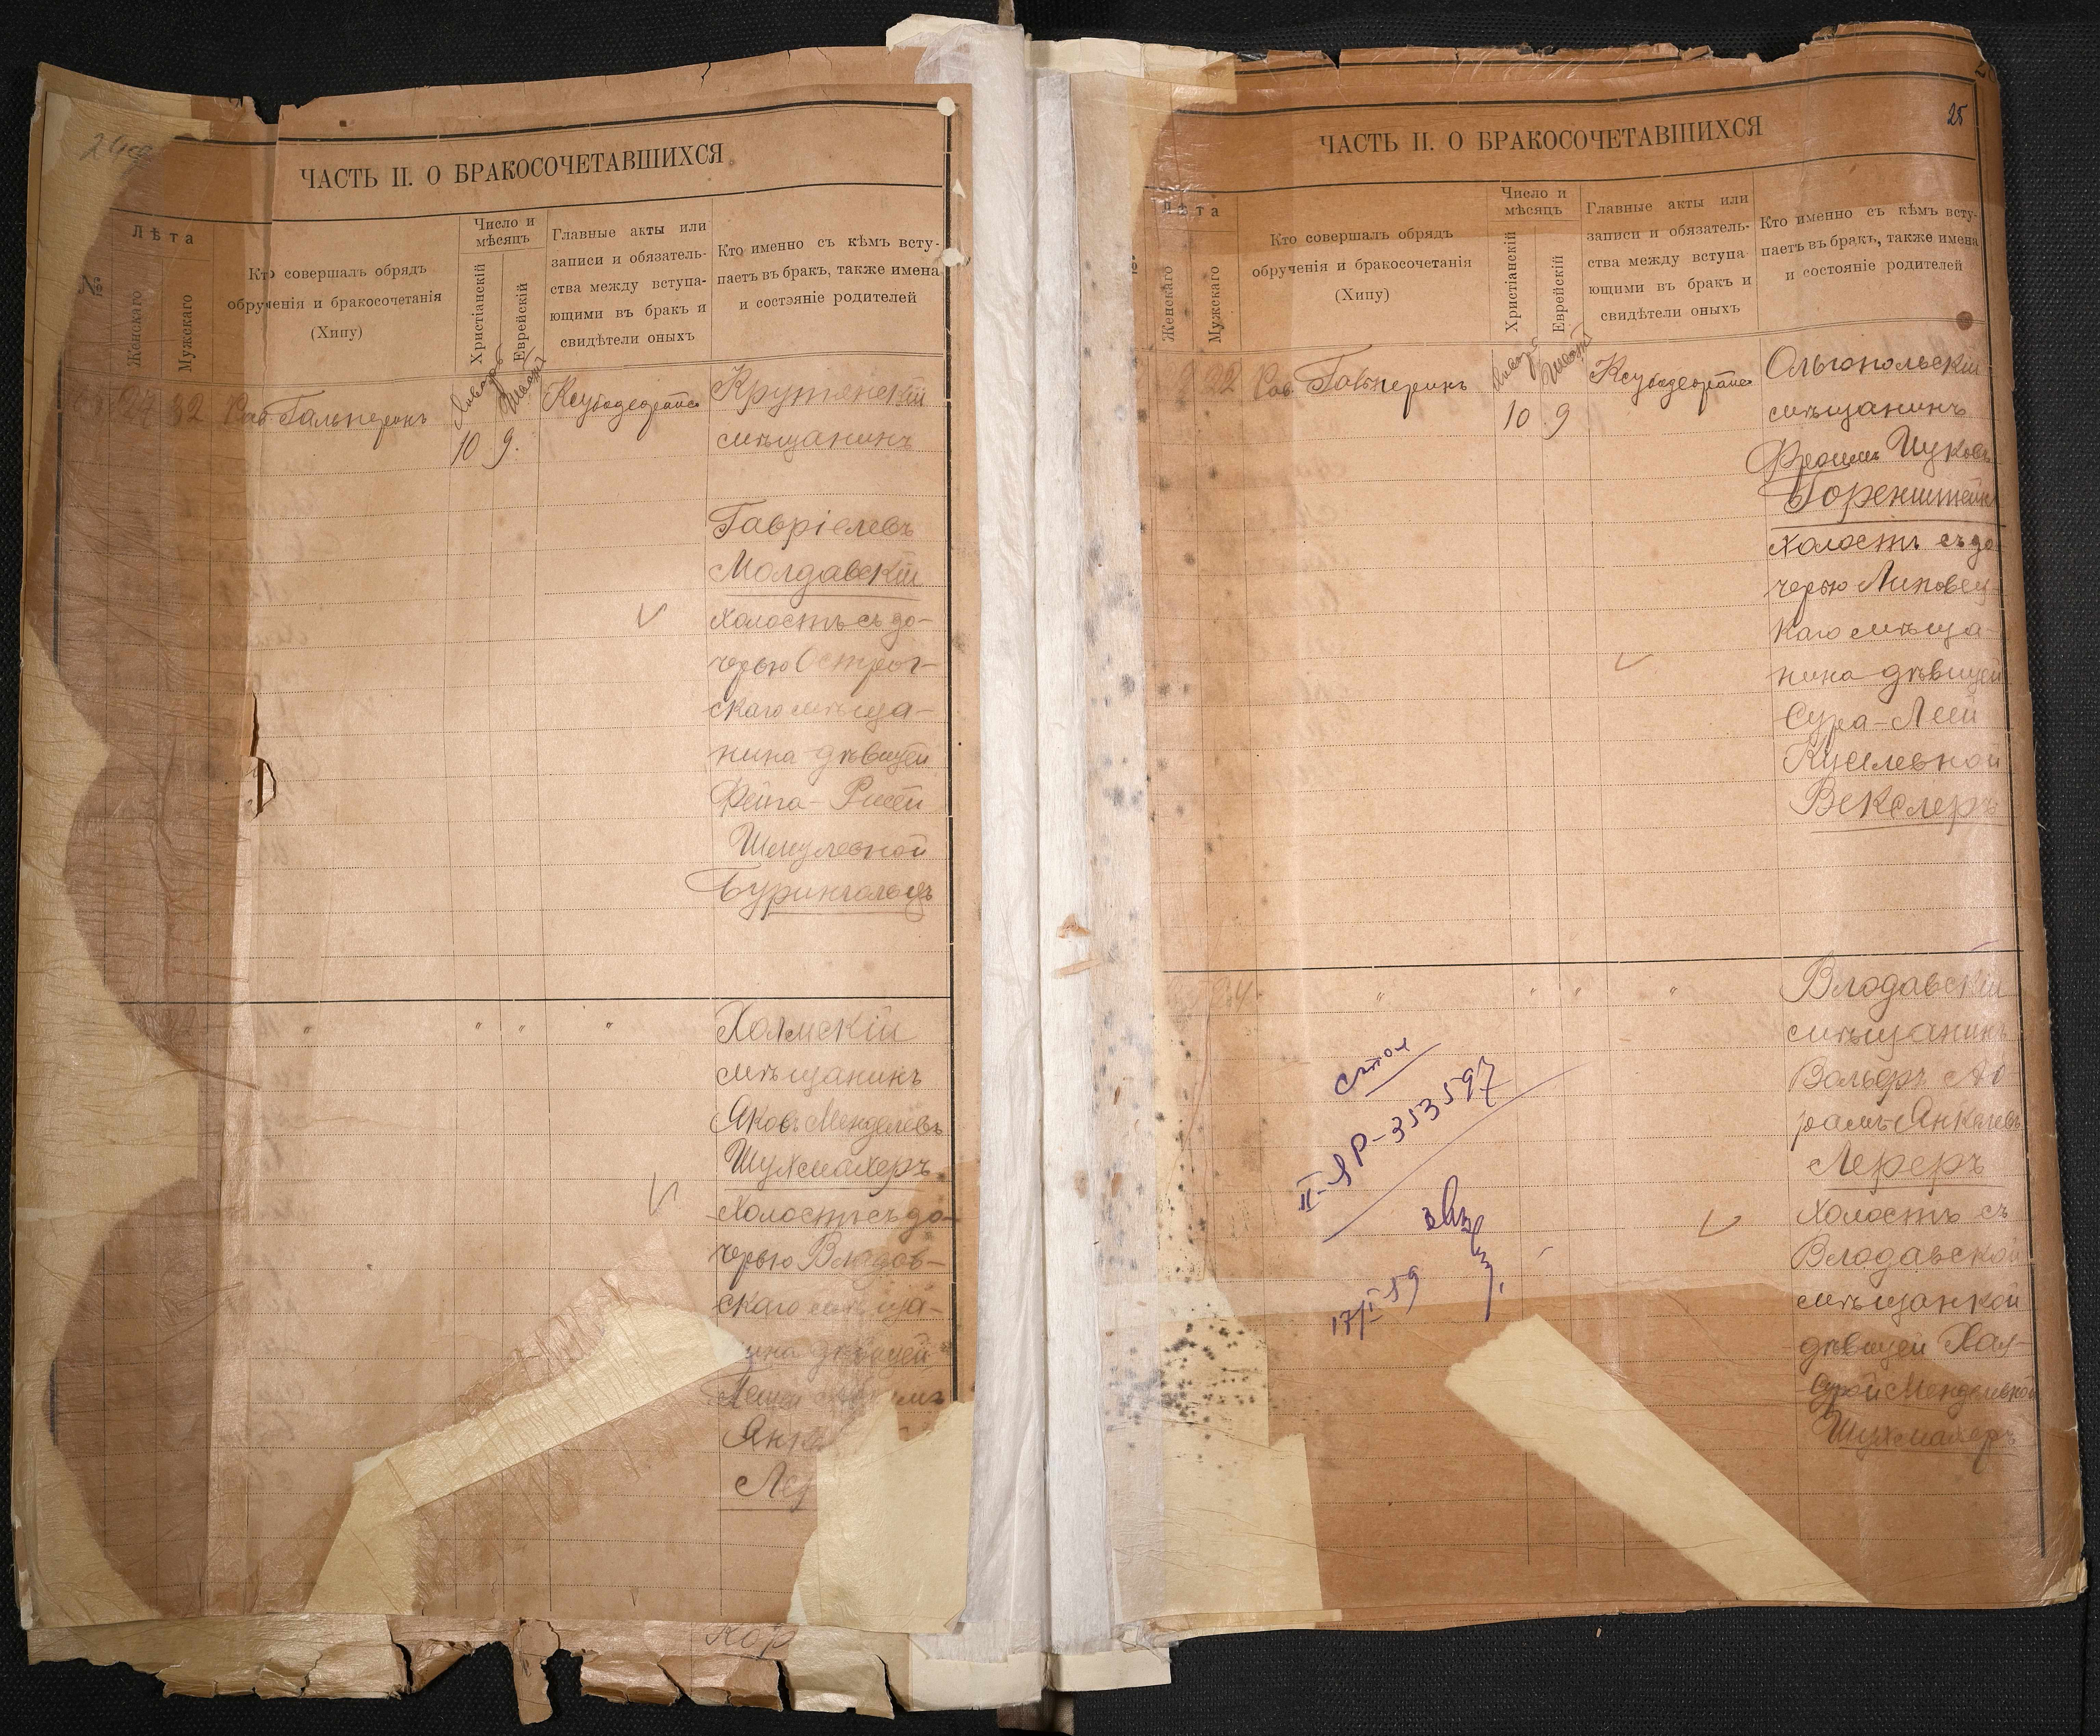 ЧАСТЬ II. О БРАКОСОЧЕТАВШИХСЯ
№
Лѣта
Женскаго
Мужскаго
Кто совершалъ обрядъ
обрученія и бракосочетанія
(Хипу)
Число и
мѣсяцъ
Христіанскій
Еврейскій
Главные акты или
записи и обязатель-
ства между вступа-
ющими въ бракъ и
свидѣтели оныхъ
Кто именно съ кѣмъ всту-
паетъ въ бракъ, также имена
и состояніе родителей
32
Рав. Гальперинъ
Январь
10
Шватъ
9.
Крутянскій
мѣщанинъ
Гавріелевъ
Молдавскій
холостъ съ до-
черью Острог-
скаго мѣща-
нина дѣвицей
Фейга-Рисей
Шмулевной
Бурингольцъ
" " " "
Холмскій
мѣщанинъ
Яковъ Менделевъ
Шухмахеръ
холостъ съ до-
черью Владов-
скаго мѣща-
нина дѣвицей
Янк
Лер
Кор
25
ЧАСТЬ II. О БРАКОСОЧЕТАВШИХСЯ
Лѣта
Женскаго
Мужскаго
Кто совершалъ обрядъ
обрученія и бракосочетанія
(Хипу)
Число и
мѣсяцъ
Христіанскій
Еврейскій
Главные акты или
записи и обязатель-
ства между вступа-
ющими въ бракъ и
свидѣтели оныхъ
Кто именно съ кѣмъ всту-
паетъ въ бракъ, также имена
и состояніе родителей
22
Рав. Гальперинъ
Январь
10
Шватъ
9
Ольгопольскій
мѣщанинъ
Фроимъ Ицковъ
Горенштейнъ
холостъ съ до-
черью Липовец-
каго мѣща-
нина дѣвицей
Сура-Леей
Киселевной
Векслеръ
24
" " " "
Влодавскій
мѣщанинъ
Вольфъ Аб
рамъ Янкелевъ
Лереръ
холостъ съ
Влодавской
мѣщанкой
дѣвицей Хая-
Сурой Менделевной
Шухмахеръ
II-ЯР-353597
17/I-59